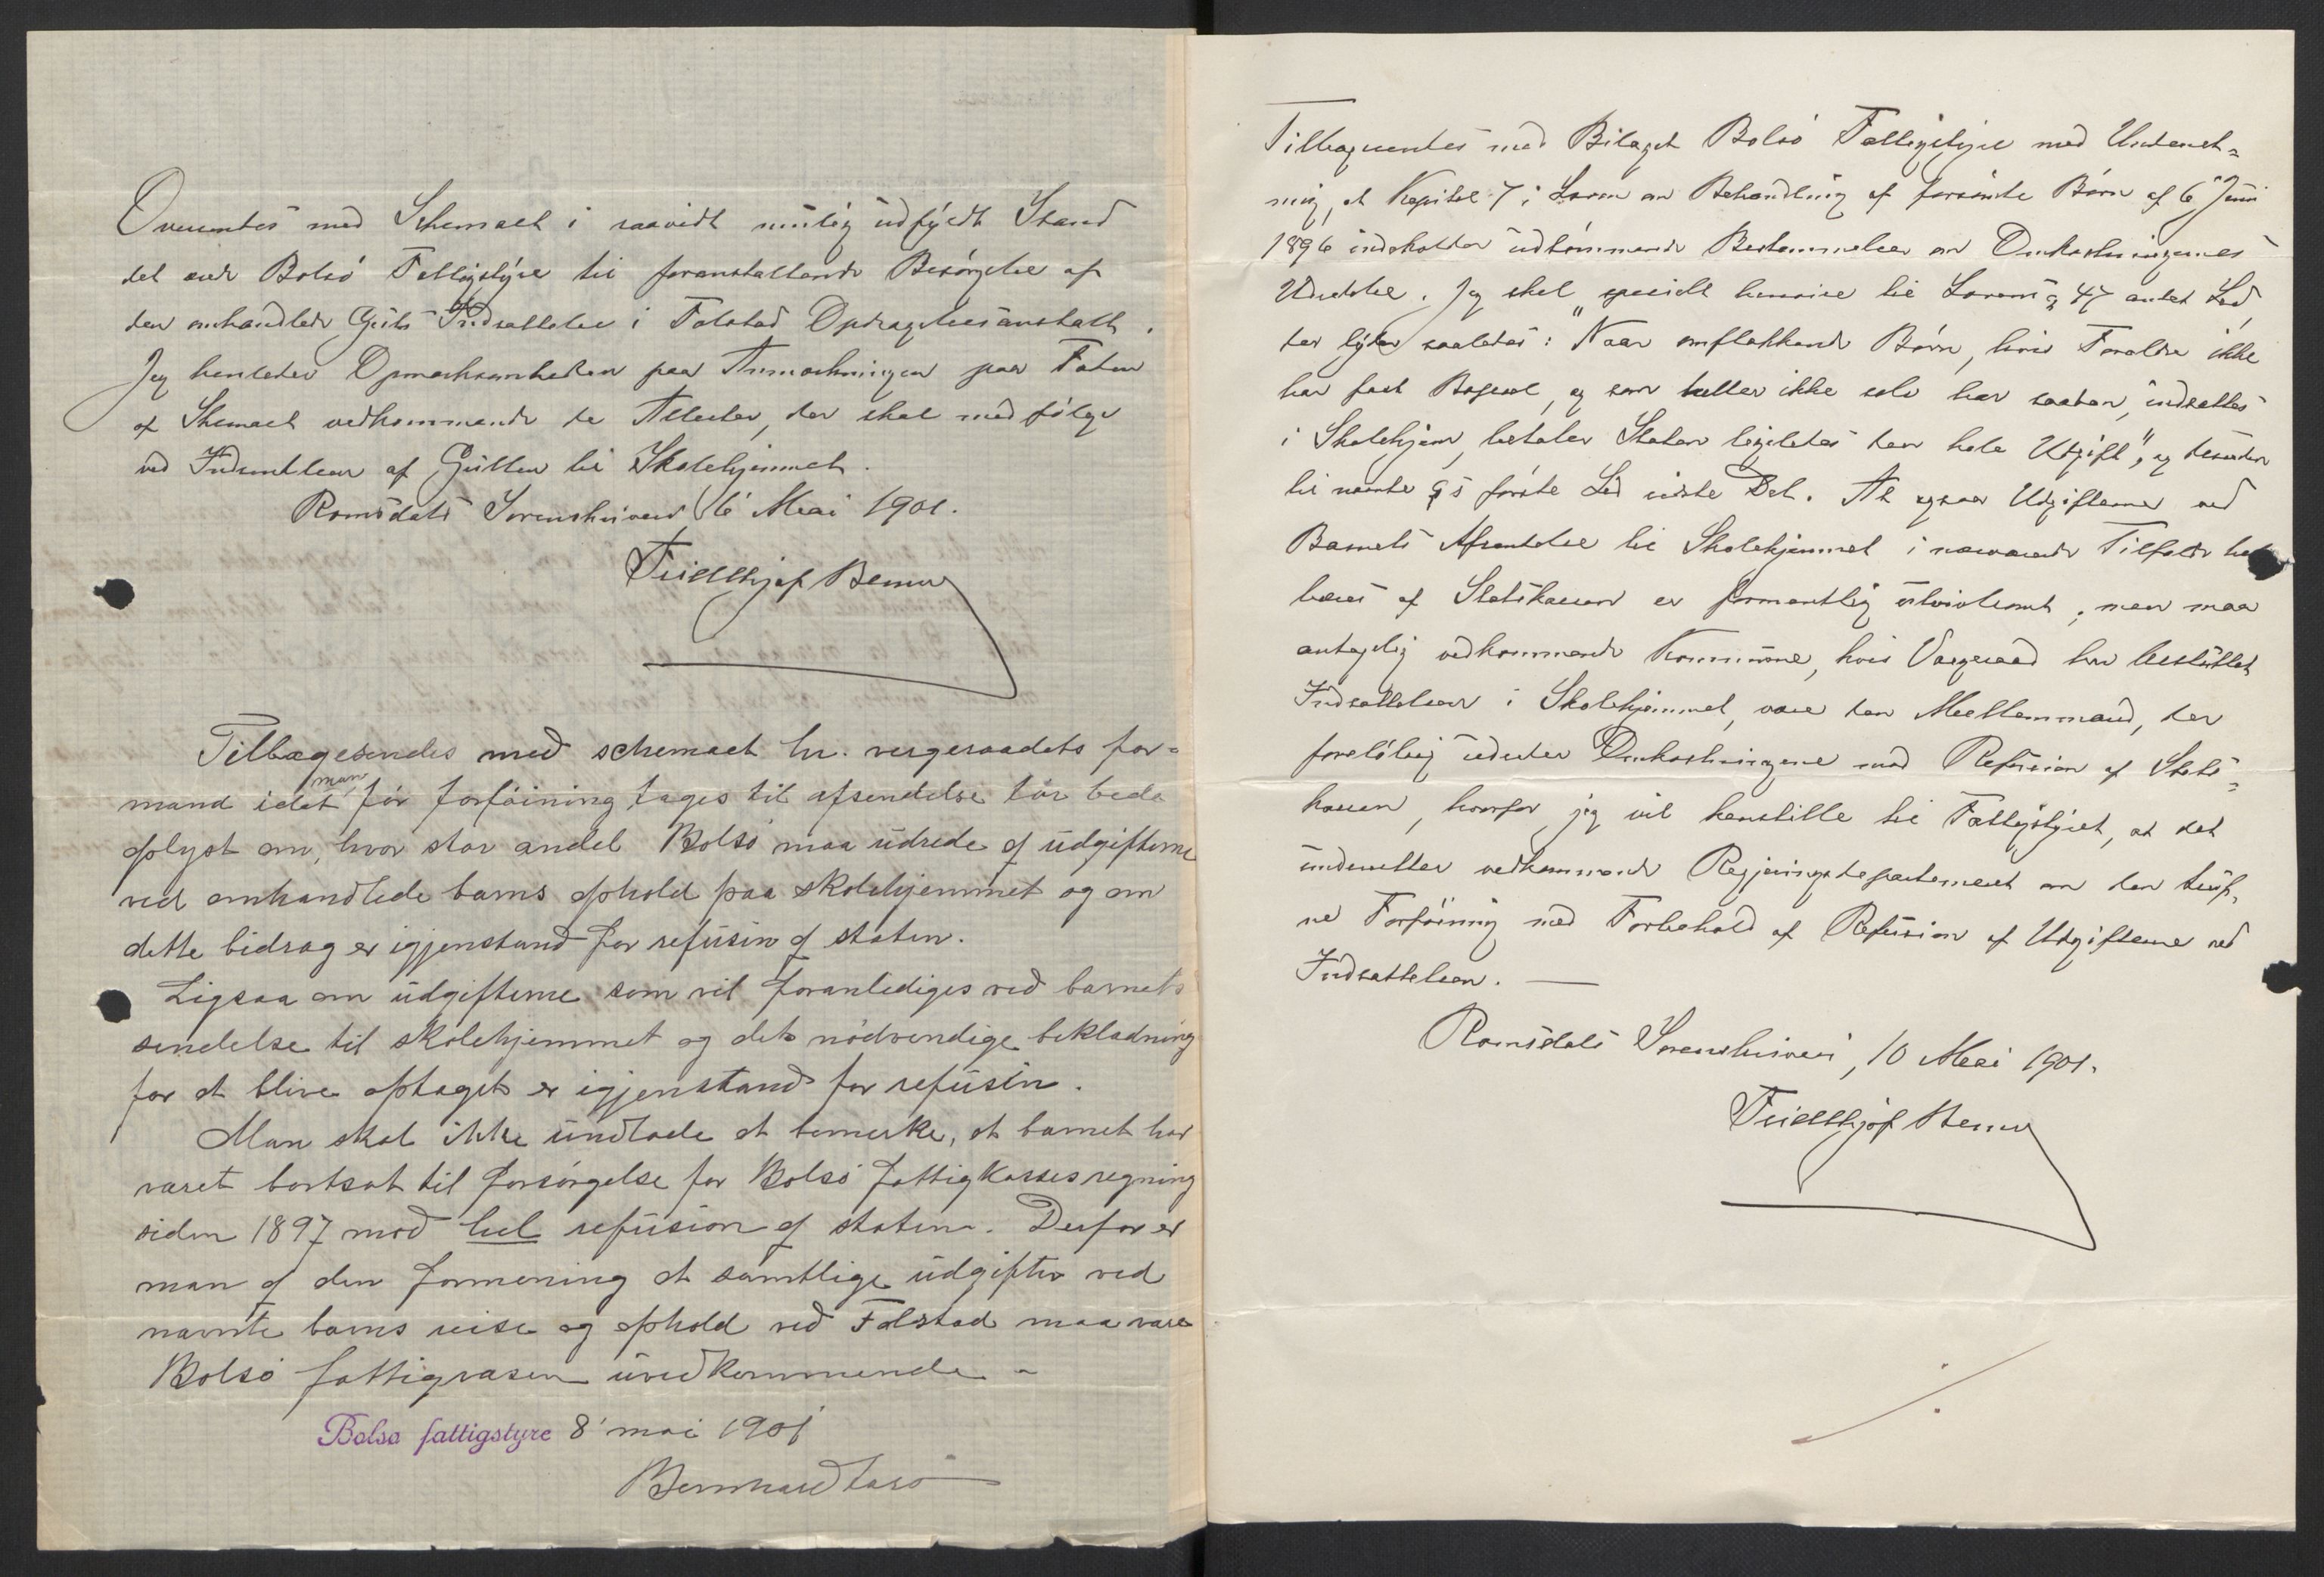 Oversendes med Schemaet i saavidt mulig udfyldt Stand
det ærede Bolsø Fattigstyre til foranstaltende Besørgelse af
den omhandlede Guts Indsættelse i Falstad Opdragelsesanstalt.
Jeg henleder Opmærksomheden paa Anmærkningen paa Foden
af Skemaet vedkommende de Attester, der skal medfølge
ved Indsendelsen af Gutten til Skolehjemmet.
Romsdals Sorenskriveri 6 Mai 1901.
Fridthjof
Tilbagesendes med schemaet hr. vergeraadets for-
mand idet man før forføining tages til afsendelse tør bede
oplyst om, hvor stor andel Bolsø maa udrede af udgifterne
ved omhandlede barns ophold paa skolehjemmet og om
dette bidrag er igjenstand for refusin af staten.
Ligsaa om udgifterne som vil foranlediges ved barnets
sendelse til skolehjemmet og dets nødvendige beklædning
for at blive optaget er igjenstand for refusin.
Man skal ikke undlade at bemerke, at barnet har
været bortsat til forsørgelse for Bolsø fattigkasses regning
siden 1897 mod hel refusion af staten. Derfor er
man af den formening at samtlige udgifter ved
nævnte barns reise og ophold ved Falstad maa være
Bolsø fattigvæsen uvedkommende -
Bolsø fattigstyre 8' mai 1901
Bernhard
Tilbagesendes med Bilaget Bolsø Fattigstyre med Underret-
ning, at Kapitel 7 i Loven om Behandling af forsømte Børn af 6 Juni
1896 indeholder udtømmende Bestemmelser om Omkostningernes
Udredelse. Jeg skal specielt henvise til Lovens § 47 andet Led,
der lyder saaledes: "Naar omflakkende Børn, hvis Forældre ikke
har fast Bopæl, og som heller ikke selv har saadan, indsættes
i Skolehjem, betaler Staten ligeledes den hele Udgift", og desuden
til nævnte §s første Led sidste Del. At ogsaa Udgifterne ved
Barnets Afsendelse til Skolehjemmet i nærværende Tilfælde helt
bæres af Statskassen er formentlig utvivlsomt; men maa
antagelig vedkommende Kommune, hvis Værgeraad har besluttet
Indsættelsen i Skolehjemmet, være den Mellemmand, der
foreløbig udreder Omkostningerne mod Refusion af Stats-
kassen, hvorfor jeg vil henstille til Fattigstyret, at det
underretter vedkommende Regjeringsdepartement om den trufne
Forføining med Forbehold af Refusion af Udgifterne ved
Indsættelsen. —
Romsdals Sorenskriveri, 10 Mai 1901.
Fridthjof